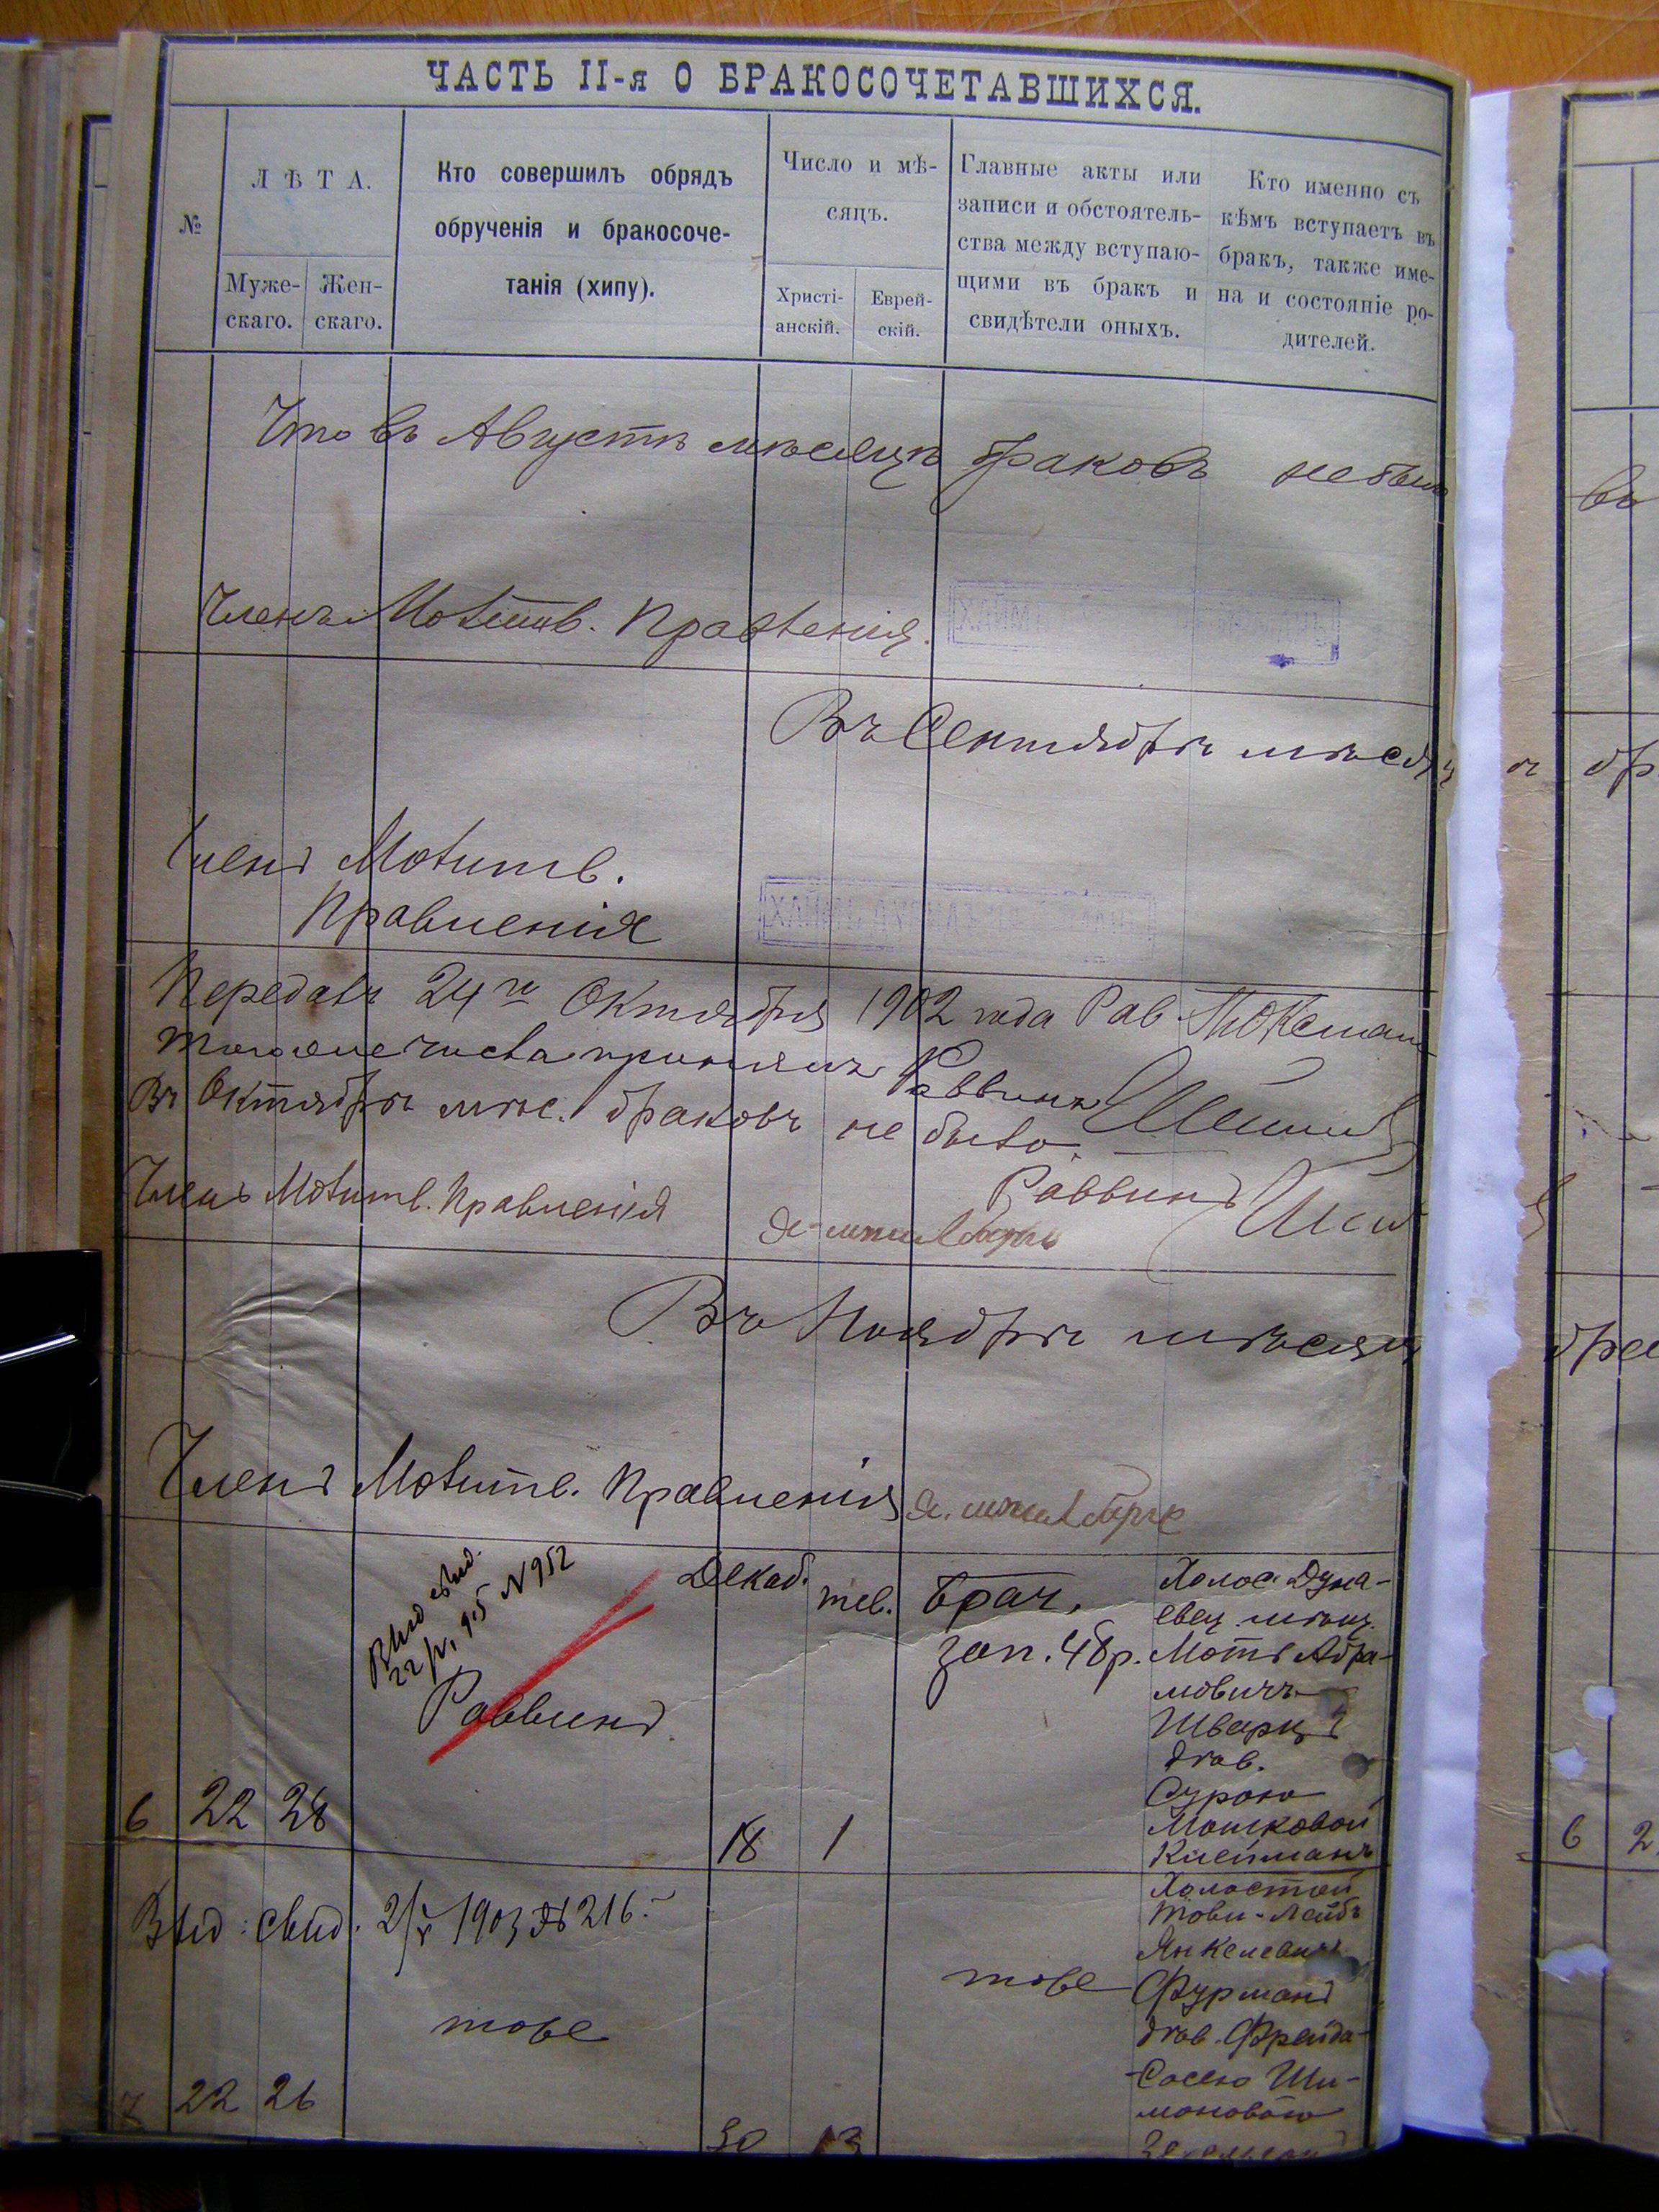 ЧАСТЬ II-я О БРАКОСОЧЕТАВШИХСЯ.
№
ЛѢТА.
Муже-
скаго.
Жен-
скаго.
Кто совершилъ обрядъ
обрученія и бракосоче-
танія (хипу).
Число и мѣ-
сяцъ.
Христі-
анскій.
Еврей-
скій.
Главные акты или
записи и обстоятель-
ства между вступаю-
щими въ бракъ и
свидѣтели оныхъ.
Кто именно съ
кѣмъ вступаетъ въ
бракъ, также име-
на и состояніе ро-
дителей.
Что въ Августѣ мѣсяцѣ браковъ не было
Членъ Молитв. Правленія.
ХАИМЪ
Въ Сентябрѣ мѣсяц
Членъ Молитв.
Правленія
ХАИМЪ
Передалъ 24го Октября 1902 года Рав.
тогоже числа принялъ Раввинъ
Въ Октябрѣ мѣс. браковъ не было.
Раввинъ
Членъ Молитв. Правленія
Въ Ноябрѣ мѣсяц
Членъ Молитв. Правленія
Выд свид.
22/ 915 N 952
Раввинъ
Декаб.
тев.
Брач.
зап. 48 р.
Холос. Дуна-
евец. мѣщ.
Мотя Абра-
мовичъ
Шварцъ
дѣв.
Сурою
Мошковой
Клейманъ
6 22 28 18 1
Выд: свид. 2/V 1903 № 216.
Холостой
Тови-Лейбъ
Янкелевичъ
Фурманъ
дѣв. Фрейда-
Сосею Ши-
моновою
тоже
тоже
7 22 26 30 13
въ
бр
бра
6 2